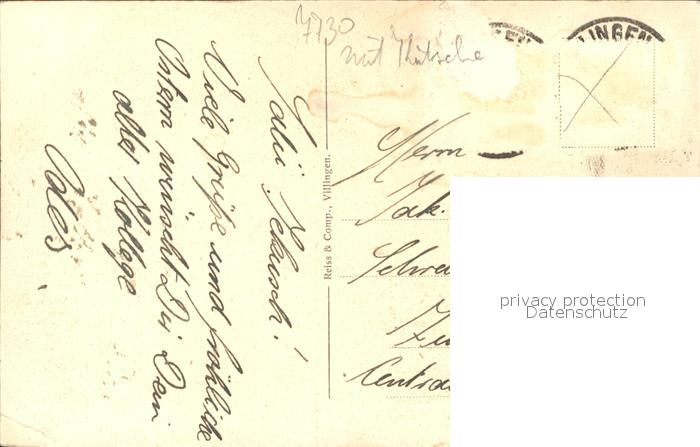 7730
mit Kutsche
LINGEN
Viele Grüße und fröhliche
Ostern wünscht Dir Dein
alter Kollege
Reiss & Comp., Villingen.
Herrn
Jak.
Schre
Zü
Centra
privacy protection
Datenschutz